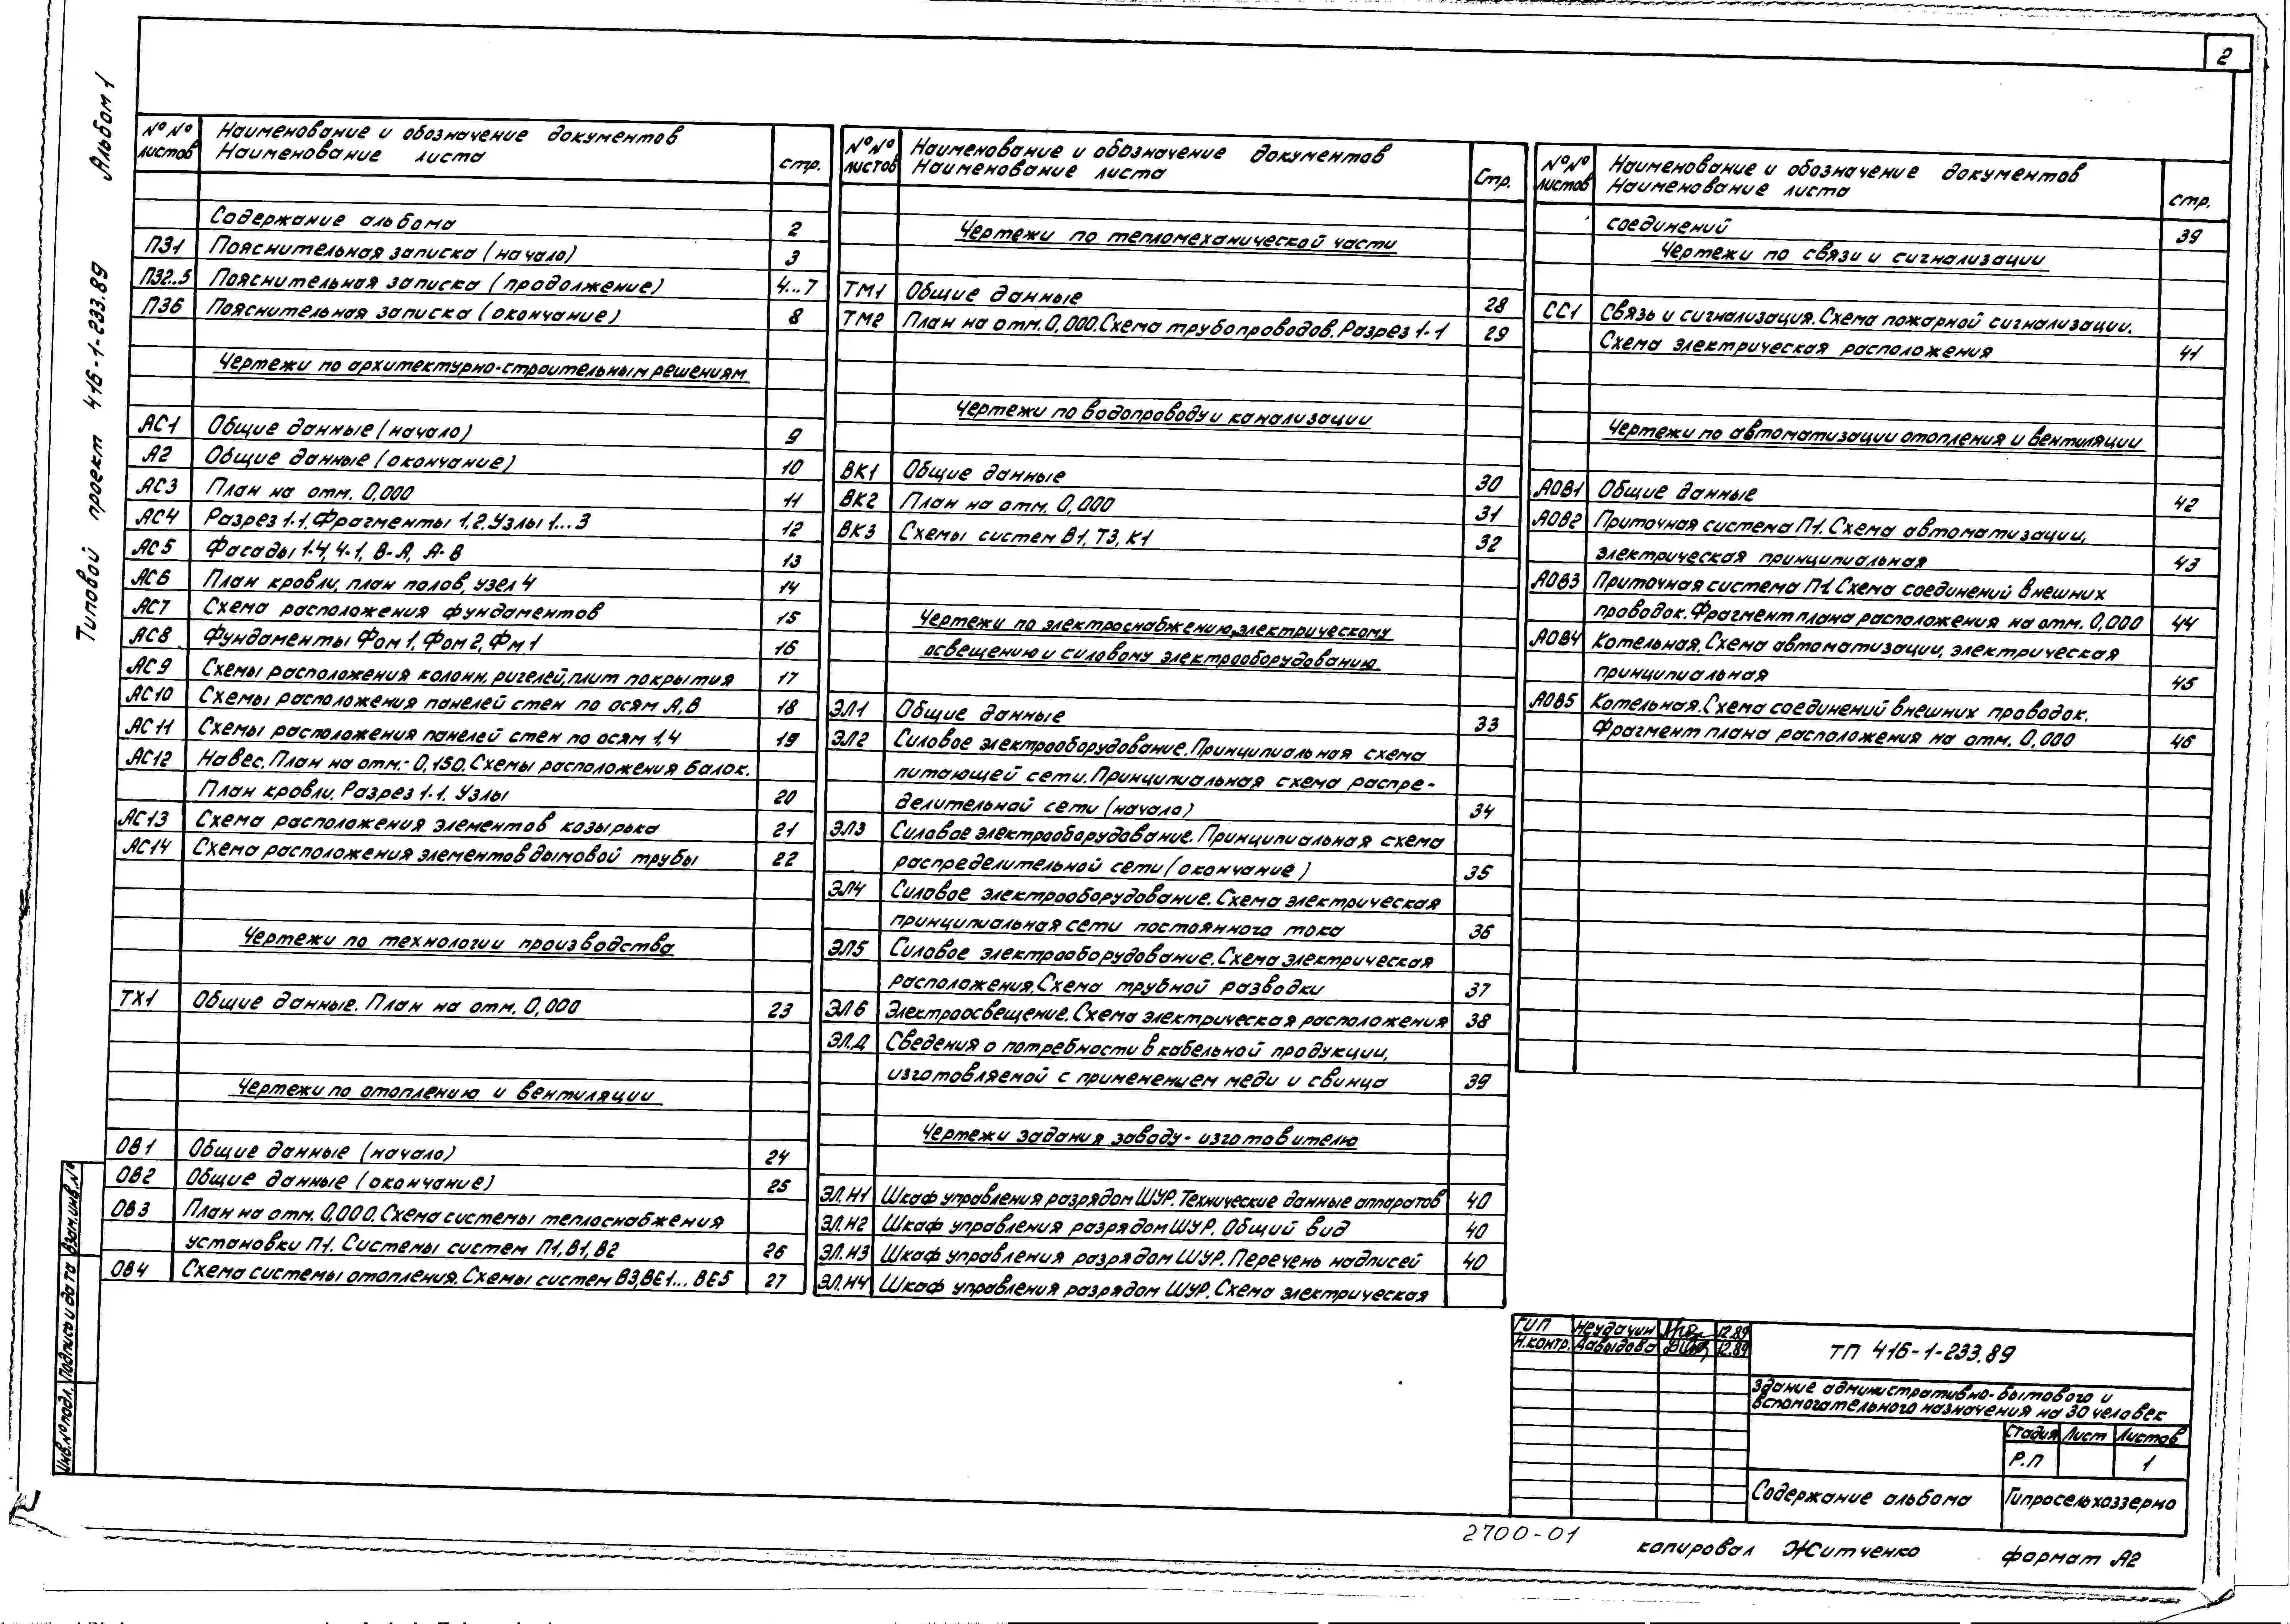 2
Альбом 1
Типовой проект 416-1-233.89
№№ листов
Наименование и обозначение документов
Наименование листа
стр.
Содержание альбома 2
ПЗ1 Пояснительная записка (начало) 3
ПЗ2..5 Пояснительная записка (продолжение) 4...7
ПЗ6 Пояснительная записка (окончание) 8
Чертежи по архитектурно-строительным решениям
АС1 Общие данные (начало) 9
А2 Общие данные (окончание) 10
АС3 План на отм. 0,000 11
АС4 Разрез 1-1, Фрагменты 1,2. Узлы 1...3 12
АС5 Фасады 1-4, 4-1, В-А, А-В 13
АС6 План кровли, план полов, узел 4 14
АС7 Схема расположения фундаментов 15
АС8 Фундаменты Фом 1, Фом 2, Фм 1 16
АС9 Схемы расположения колонн, ригелей, плит покрытия 17
АС10 Схемы расположения панелей стен по осям А, В 18
АС11 Схемы расположения панелей стен по осям 1,4 19
АС12 Навес. План на отм.- 0,150. Схемы расположения балок.
План кровли. Разрез 1-1. Узлы 20
АС13 Схема расположения элементов козырька 21
АС14 Схема расположения элементов дымовой трубы 22
Чертежи по технологии производства
ТХ1 Общие данные. План на отм. 0,000 23
Чертежи по отоплению и вентиляции
ОВ1 Общие данные (начало) 24
ОВ2 Общие данные (окончание) 25
ОВ3 План на отм. 0,000. Схема системы теплоснабжения
установки П1. Системы систем П1, В1, В2 26
ОВ4 Схема системы отопления. Схемы систем В3, ВЕ1... ВЕ5 27
№№ листов
Наименование и обозначение документов
Наименование листа
Стр.
Чертежи по тепломеханической части
ТМ1 Общие данные 28
ТМ2 План на отм. 0,000. Схема трубопроводов. Разрез 1-1 29
Чертежи по водопроводу и канализации
ВК1 Общие данные 30
ВК2 План на отм. 0,000 31
ВК3 Схемы систем В1, Т3, К1 32
Чертежи по электроснабжению, электрическому
освещению и силовому электрооборудованию
ЭЛ1 Общие данные 33
ЭЛ2 Силовое электрооборудование. Принципиальная схема
питающей сети. Принципиальная схема распре-
делительной сети (начало) 34
ЭЛ3 Силовое электрооборудование. Принципиальная схема
распределительной сети (окончание) 35
ЭЛ4 Силовое электрооборудование. Схема электрическая
принципиальная сети постоянного тока 36
ЭЛ5 Силовое электрооборудование. Схема электрическая
расположения. Схема трубной разводки 37
ЭЛ6 Электроосвещение. Схема электрическая расположения 38
ЭЛ.Д Сведения о потребности в кабельной продукции,
изготовляемой с применением меди и свинца 39
Чертежи задания заводу-изготовителю
ЭЛ.Н1 Шкаф управления разрядом ШУР. Технические данные аппаратов 40
ЭЛ.Н2 Шкаф управления разрядом ШУР. Общий вид 40
ЭЛ.Н3 Шкаф управления разрядом ШУР. Перечень надписей 40
ЭЛ.Н4 Шкаф управления разрядом ШУР. Схема электрическая
№№ листов
Наименование и обозначение документов
Наименование листа
стр.
соединений 39
Чертежи по связи и сигнализации
СС1 Связь и сигнализация. Схема пожарной сигнализации.
Схема электрическая расположения 41
Чертежи по автоматизации отопления и вентиляции
АОВ1 Общие данные 42
АОВ2 Приточная система П1. Схема автоматизации,
электрическая принципиальная 43
АОВ3 Приточная система П-1. Схема соединений внешних
проводок. Фрагмент плана расположения на отм. 0,000 44
АОВ4 Котельная. Схема автоматизации, электрическая
принципиальная 45
АОВ5 Котельная. Схема соединений внешних проводок.
Фрагмент плана расположения на отм. 0,000 46
Инв.№ подл. Подпись и дата Взам.инв.№
ГИП Неудачин 12.89
Н.контр. Давыдова 12.89
ТП 416-1-233.89
Здание административно-бытового и
вспомогательного назначения на 30 человек
Стадия Лист Листов
Р.П 1
Содержание альбома
Гипросельхоззерно
2700-01
копировал Житченко формат А2